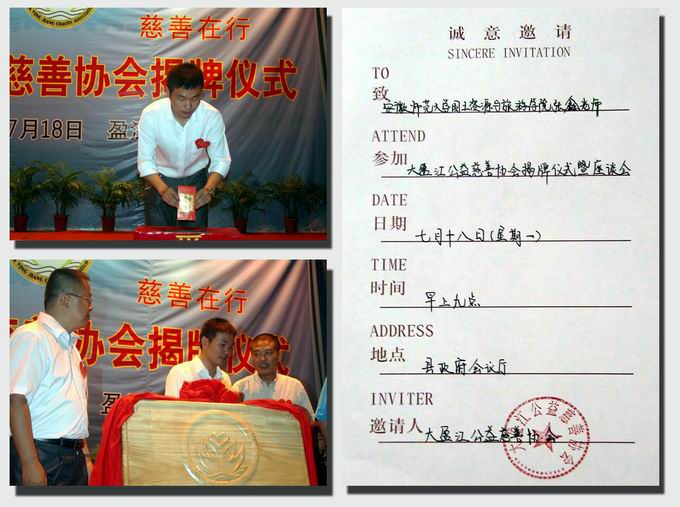 YING JIANG Charity Association
慈善在行
慈善协会揭牌仪式
7月18日 盈江
慈善在行
善协会揭牌仪式
盈
诚意邀请
SINCERE INVITATION
TO
致 安徽师范大学国土资源与旅游学院张鑫老师
ATTEND
参加 大盈江公益慈善协会揭牌仪式暨座谈会
DATE
日期 七月十八日(星期一)
TIME
时间 早上九点
ADDRESS
地点 县政府会议厅
INVITER
邀请人 大盈江公益慈善协会
大盈江公益慈善协会